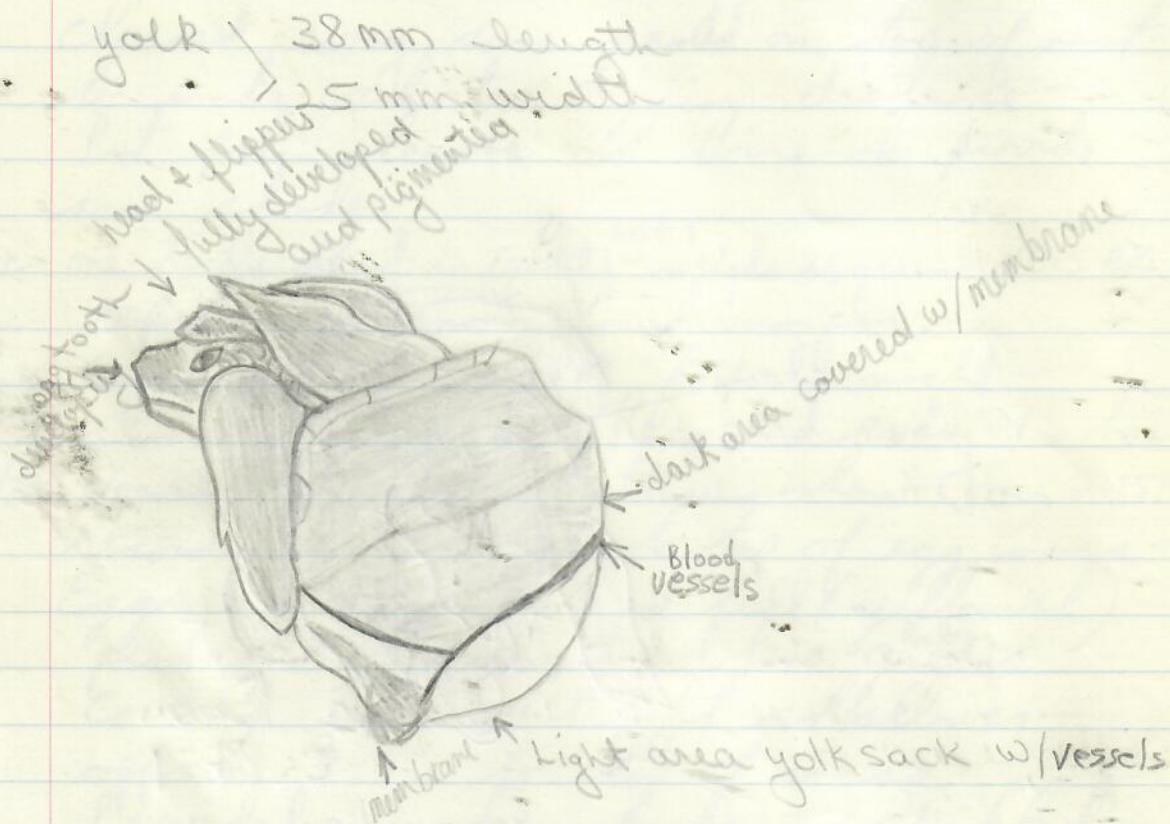 yolk } 38 mm length
25 mm width
head + flippers
fully developed
and pigmented
egg tooth
dark area covered w/membrane
Blood
vessels
Light area yolk sack w/vessels
membrane